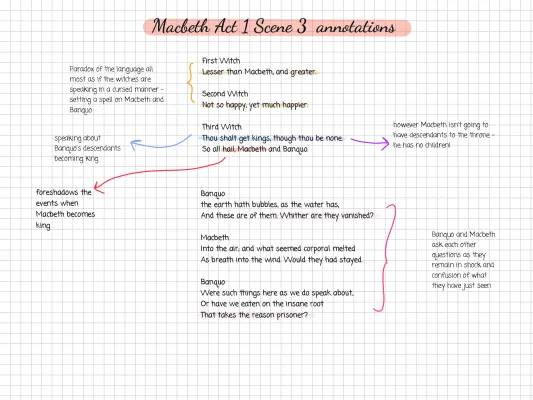 Macbeth Act 1 Scene 3 annotations
First Witch
Lesser than Macbeth, and greater.
Second Witch
Not so happy, yet much happier.
Third Witch
Thou shalt get kings, though thou be none.
So all hail, Macbeth and Banquo
Paradox of the language all
most as if the witches are
speaking in a cursed manner -
setting a spell on Macbeth and
Banquo
speaking about
Banquo's descendants
becoming king
however Macbeth isn't going to
have descendants to the throne -
he has no children!
foreshadows the
events when
Macbeth becomes
king
Banquo
the earth hath bubbles, as the water has,
And these are of them. Whither are they vanished?
Macbeth
Into the air; and what seemed corporal melted
As breath into the wind. Would they had stayed.
Banquo
Were such things here as we do speak about,
Or have we eaten on the insane root
That takes the reason prisoner?
Banquo and Macbeth
ask each other
questions as they
remain in shock and
confusion of what
they have just seen